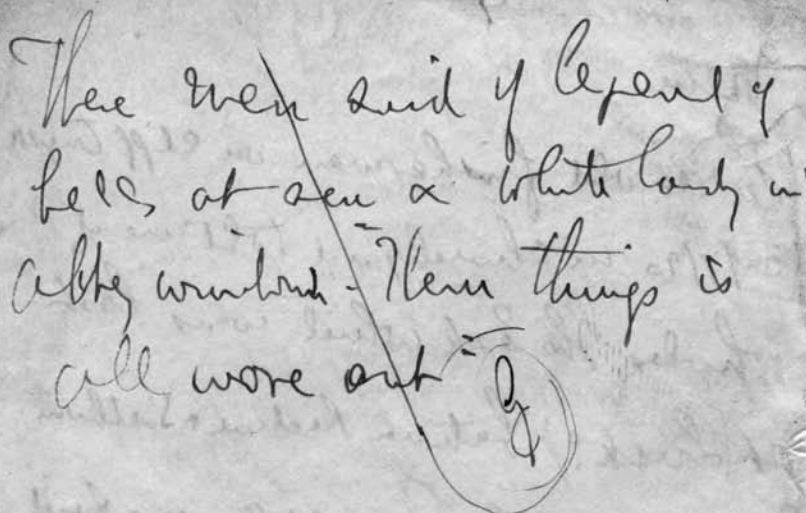 men said of legend of
bells at sea & white lady in
abbey window - "Them things is
all wore out"